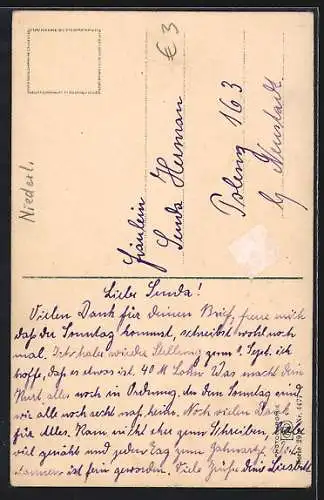 € 3
Niederl.
Fräulein
Senda Herman
163
b/ Neustadt
Liebe Senda!
Vielen Dank für deinen Brief, freue mich
daß der Sonntag kommst, schreibst wohl noch
mal. Ich habe wieder Stellung zum 1. Sept. ich
hoffe, daß es etwas ist. 40 M Lohn Was macht dein
Kurt, alles noch in Ordnung, an dem Sonntag sind
wir alle noch recht Noch vielen Dank
für Alles. Kam nicht eher zum Schreiben. Habe
viel genäht und jeden Tag zum Zahnarzt.
ist fein geworden. Viele Grüße deine Liesbeth
PHOTOCHROMIE
Serie Nr.